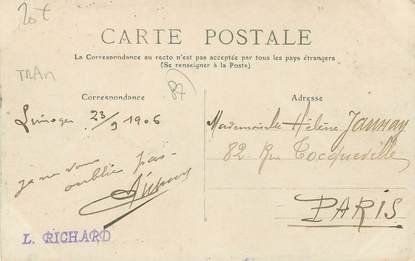 20t
CARTE POSTALE
La Correspondance au recto n'est pas acceptée par tous les pays étrangers
(Se renseigner à la Poste)
TRAM
87)
Correspondance
Limoges 23/9 1906
je ne vous
oublie pas
Adresse
Mademoiselle Hélène
82 Rue Tocqueville
PARIS
L. RICHARD